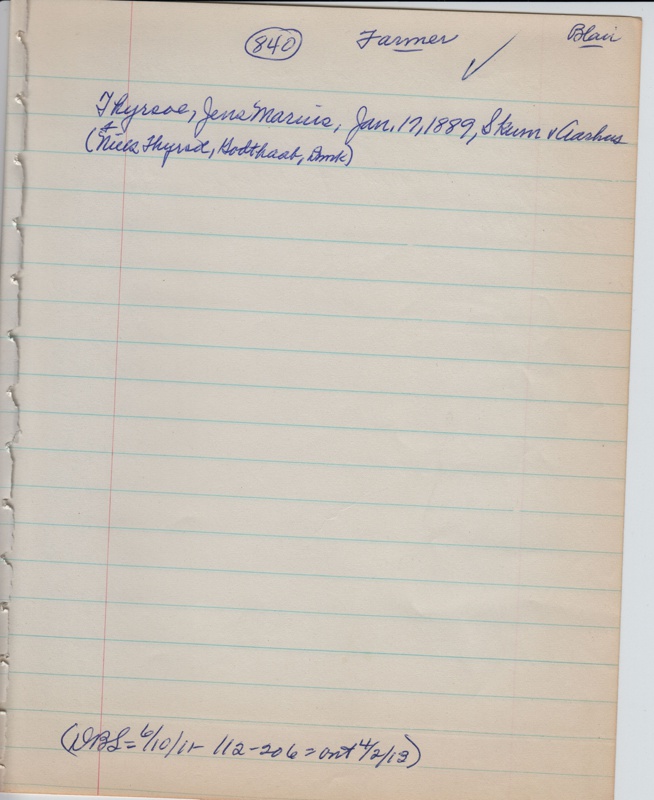 840 Farmer Blair
Thyrsoe, Jens Marius, Jan. 17, 1889, Skum v Aarhus
(+ Niels Thyrsd, Godthaab, Dmk)
(DBS = 6/10/11- 112-206 = ont 4/2/12)